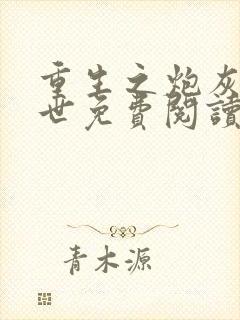 重生之炮灰
世免費閱讀
青木源